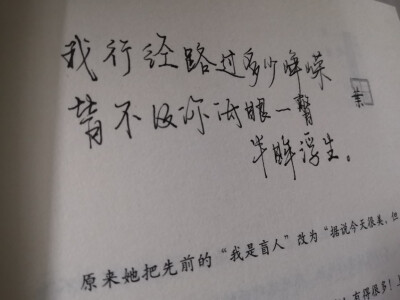 我行经路过多少峥嵘
皆不及你两眼一瞥
半眸浮生。
原来她把先前的“我是盲人”改为“据说今天很美，但
得很多！上